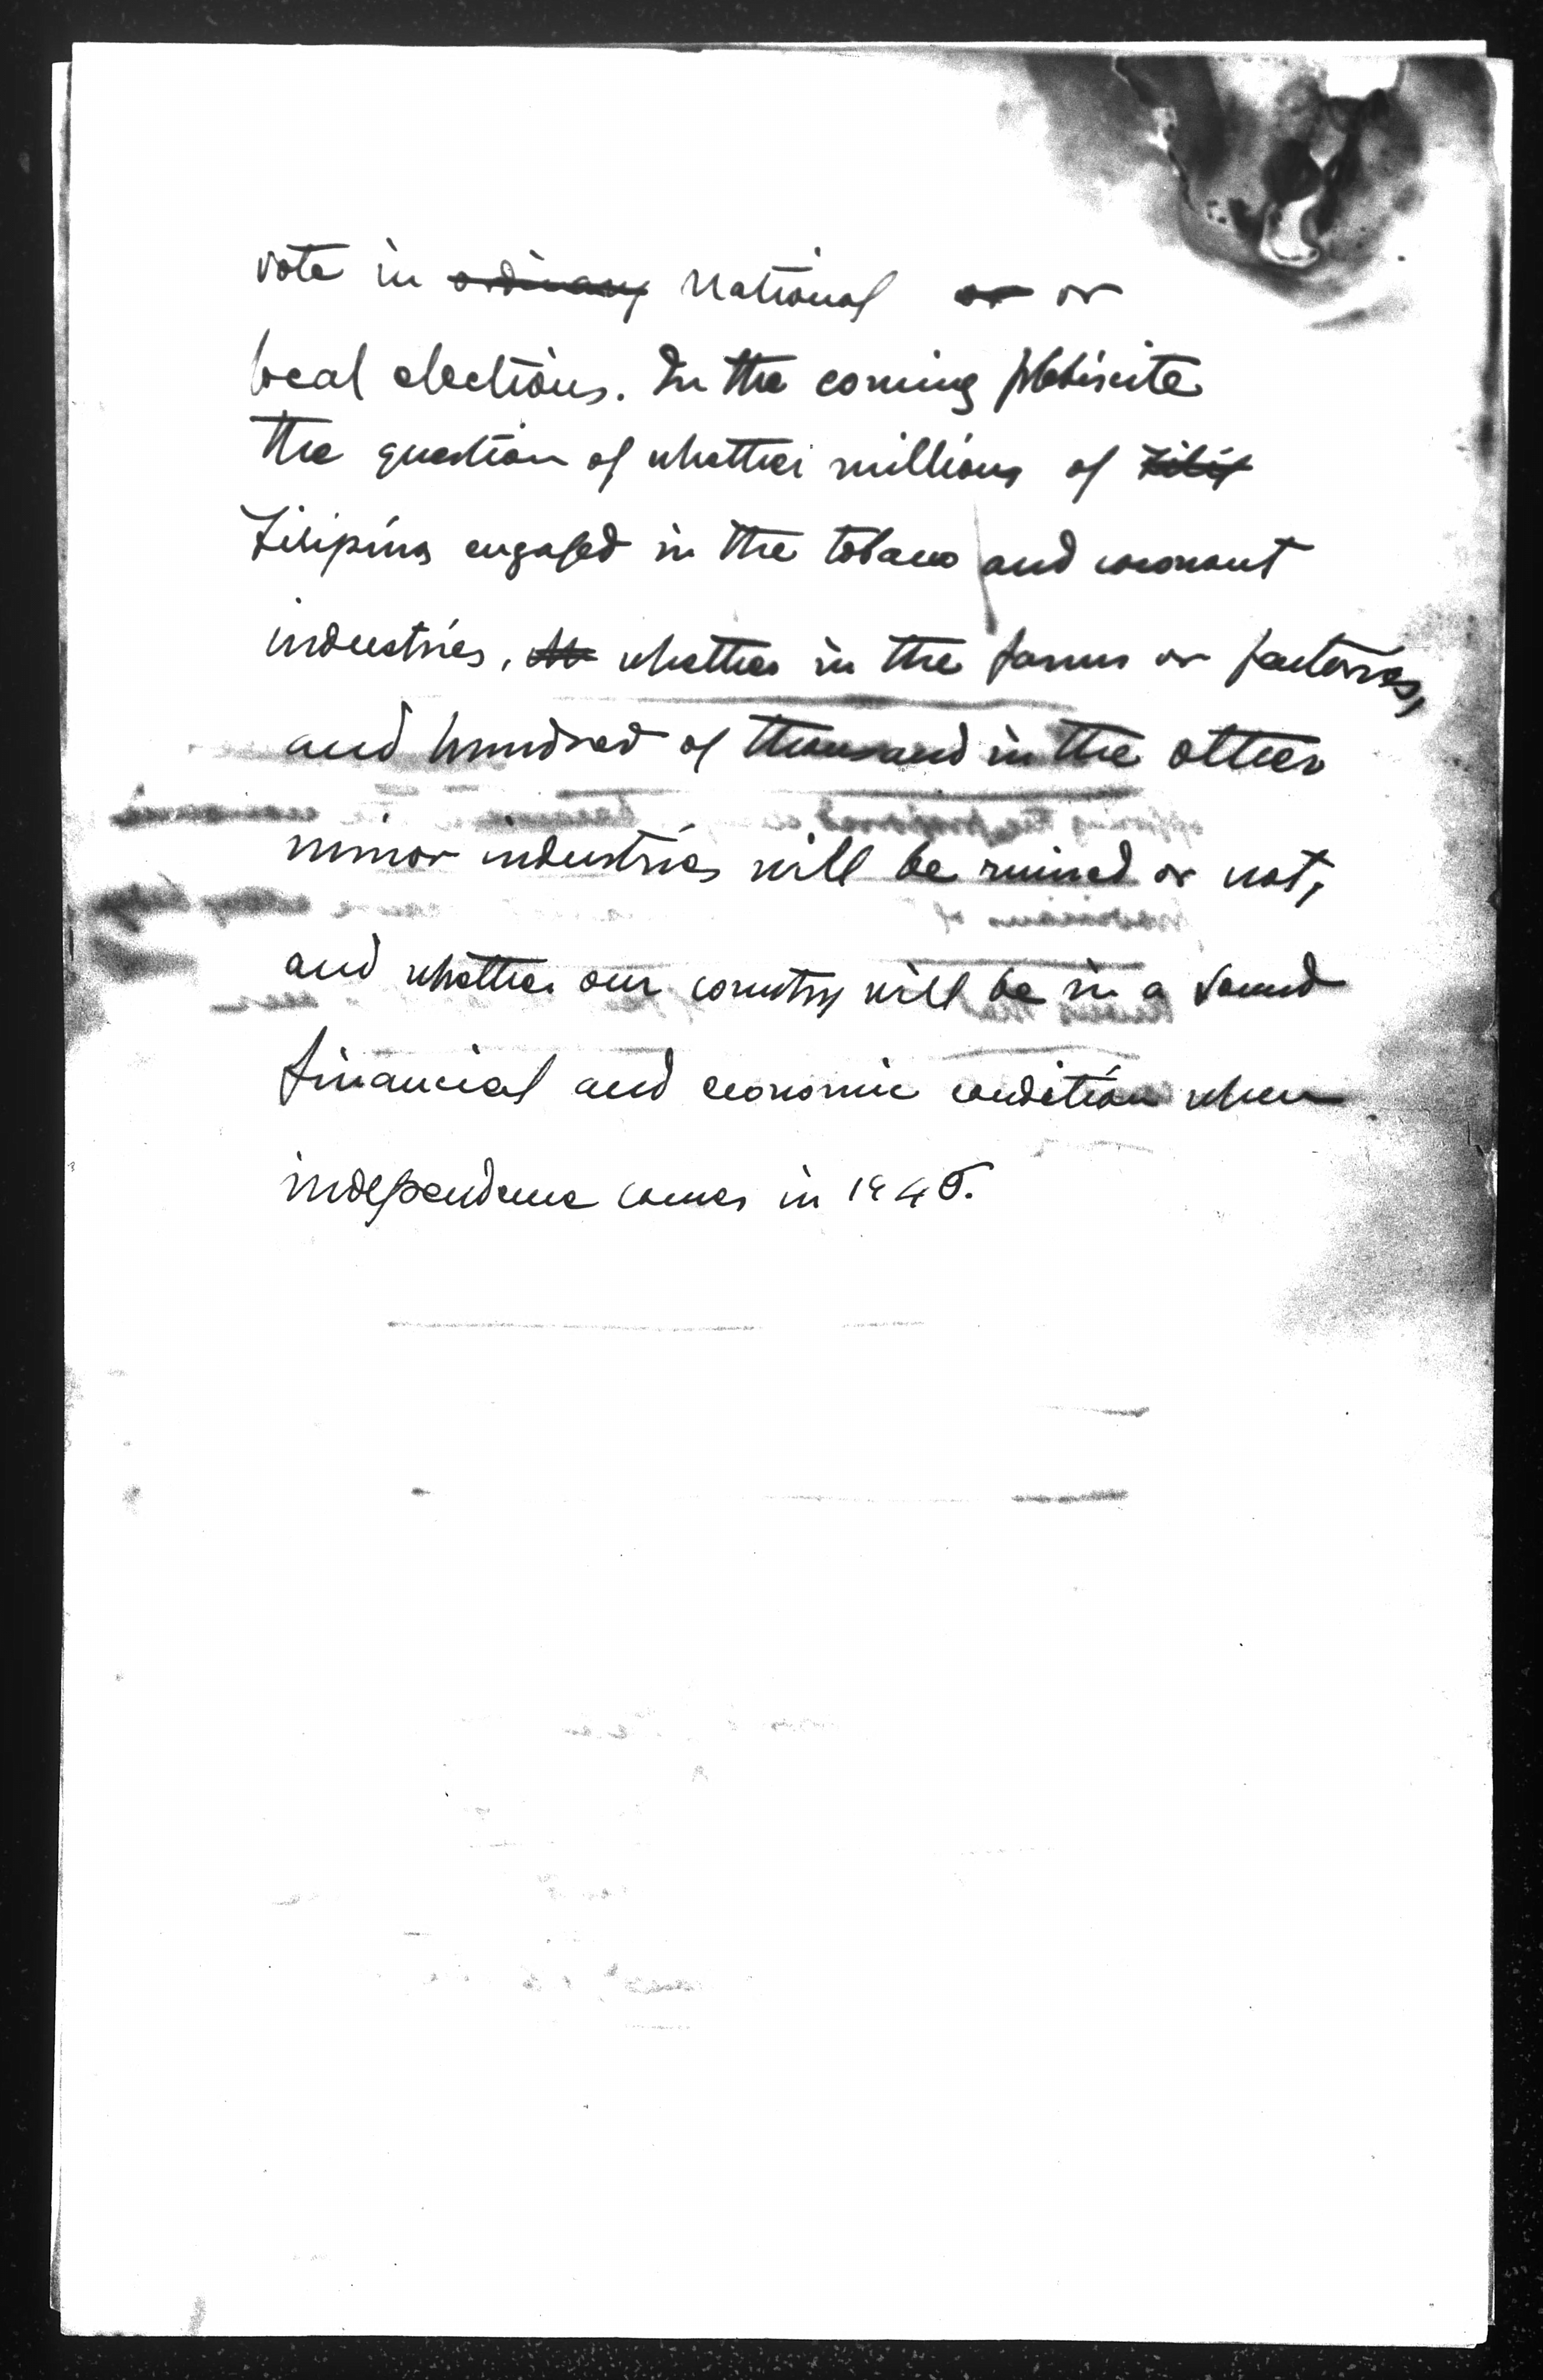 vote in ordinary National or or
local elections. In the coming plebiscite
the question of whether millions of Filip
Filipinos engaged in the tobacco and coconut
industries, whether in the farms or factories,
and hundred of thousand in the other
minor industries will be ruined or not,
and whether our country will be in a sound
financial and economic condition when
independence comes in 1946.